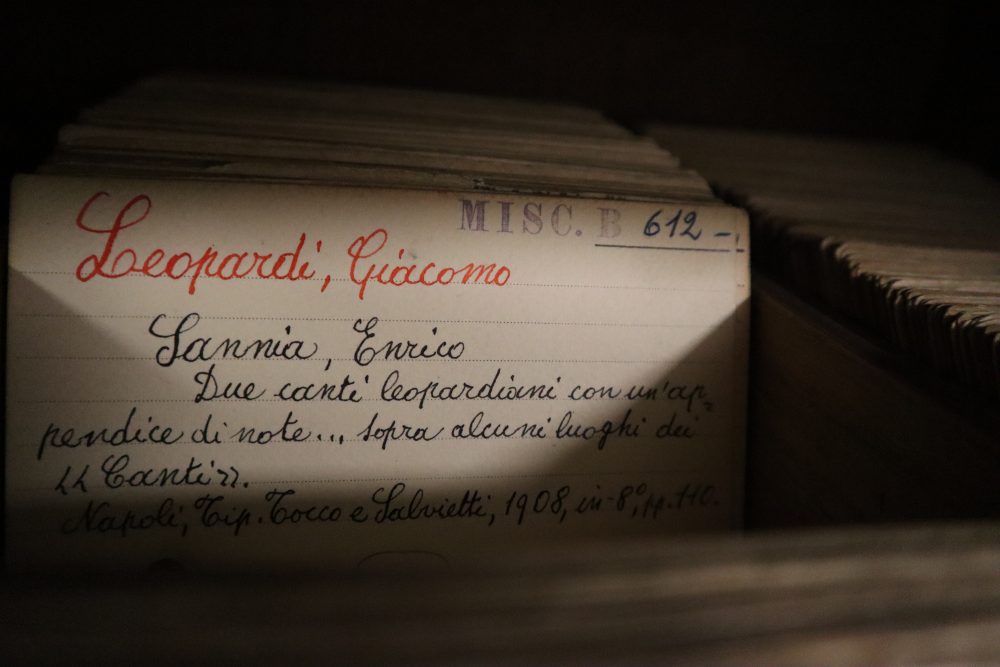 MISC. B 612 -
Leopardi, Giacomo
Sannia, Enrico
Due canti leopardiani con un'ap-
pendice di note... sopra alcuni luoghi dei
"Canti".
Napoli, Tip. Tocco e Salvietti, 1908, in-8°, pp. 110.